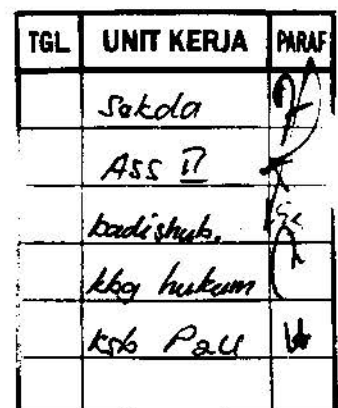 TGL. UNIT KERJA PARAF
Sekda
Ass II
kadishub.
kbg hukum
ksb PaU